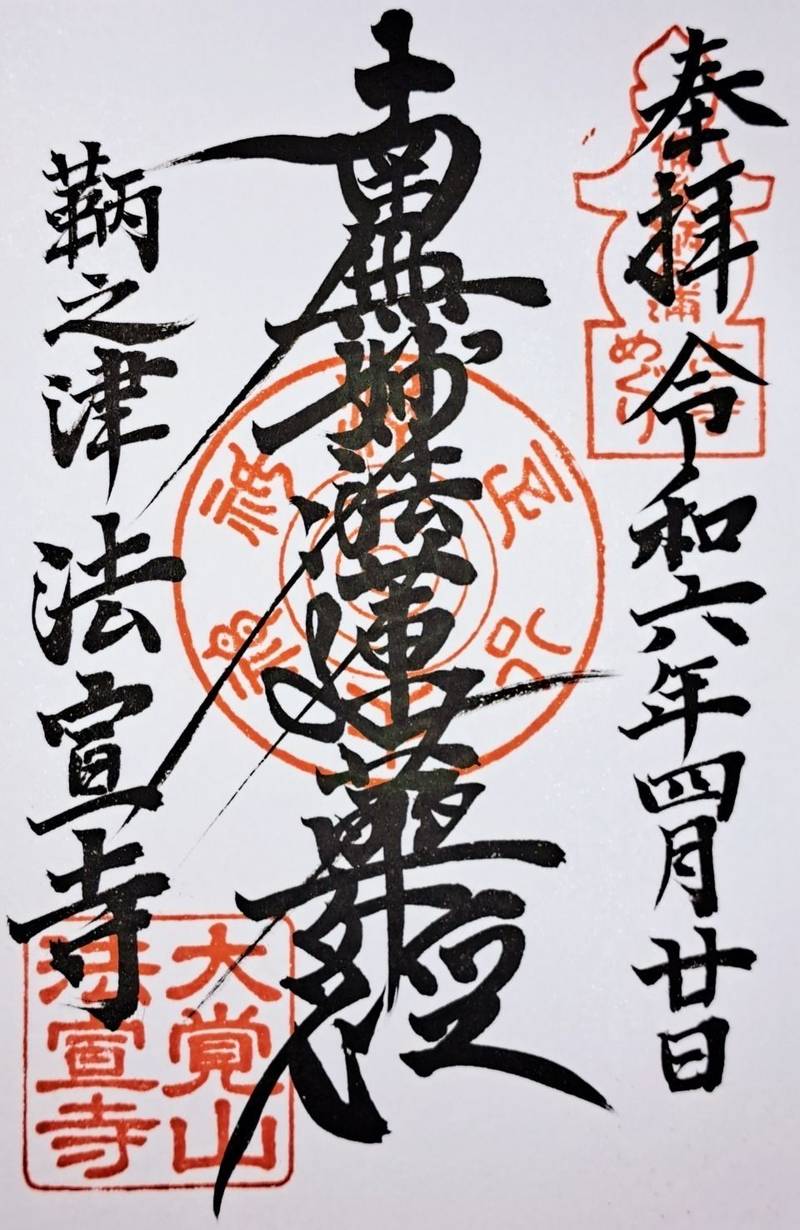 奉拝 令和六年四月廿日
南無妙法蓮華経
鞆之津 法宣寺
鞆の浦
めぐり
大覚山
法宣寺